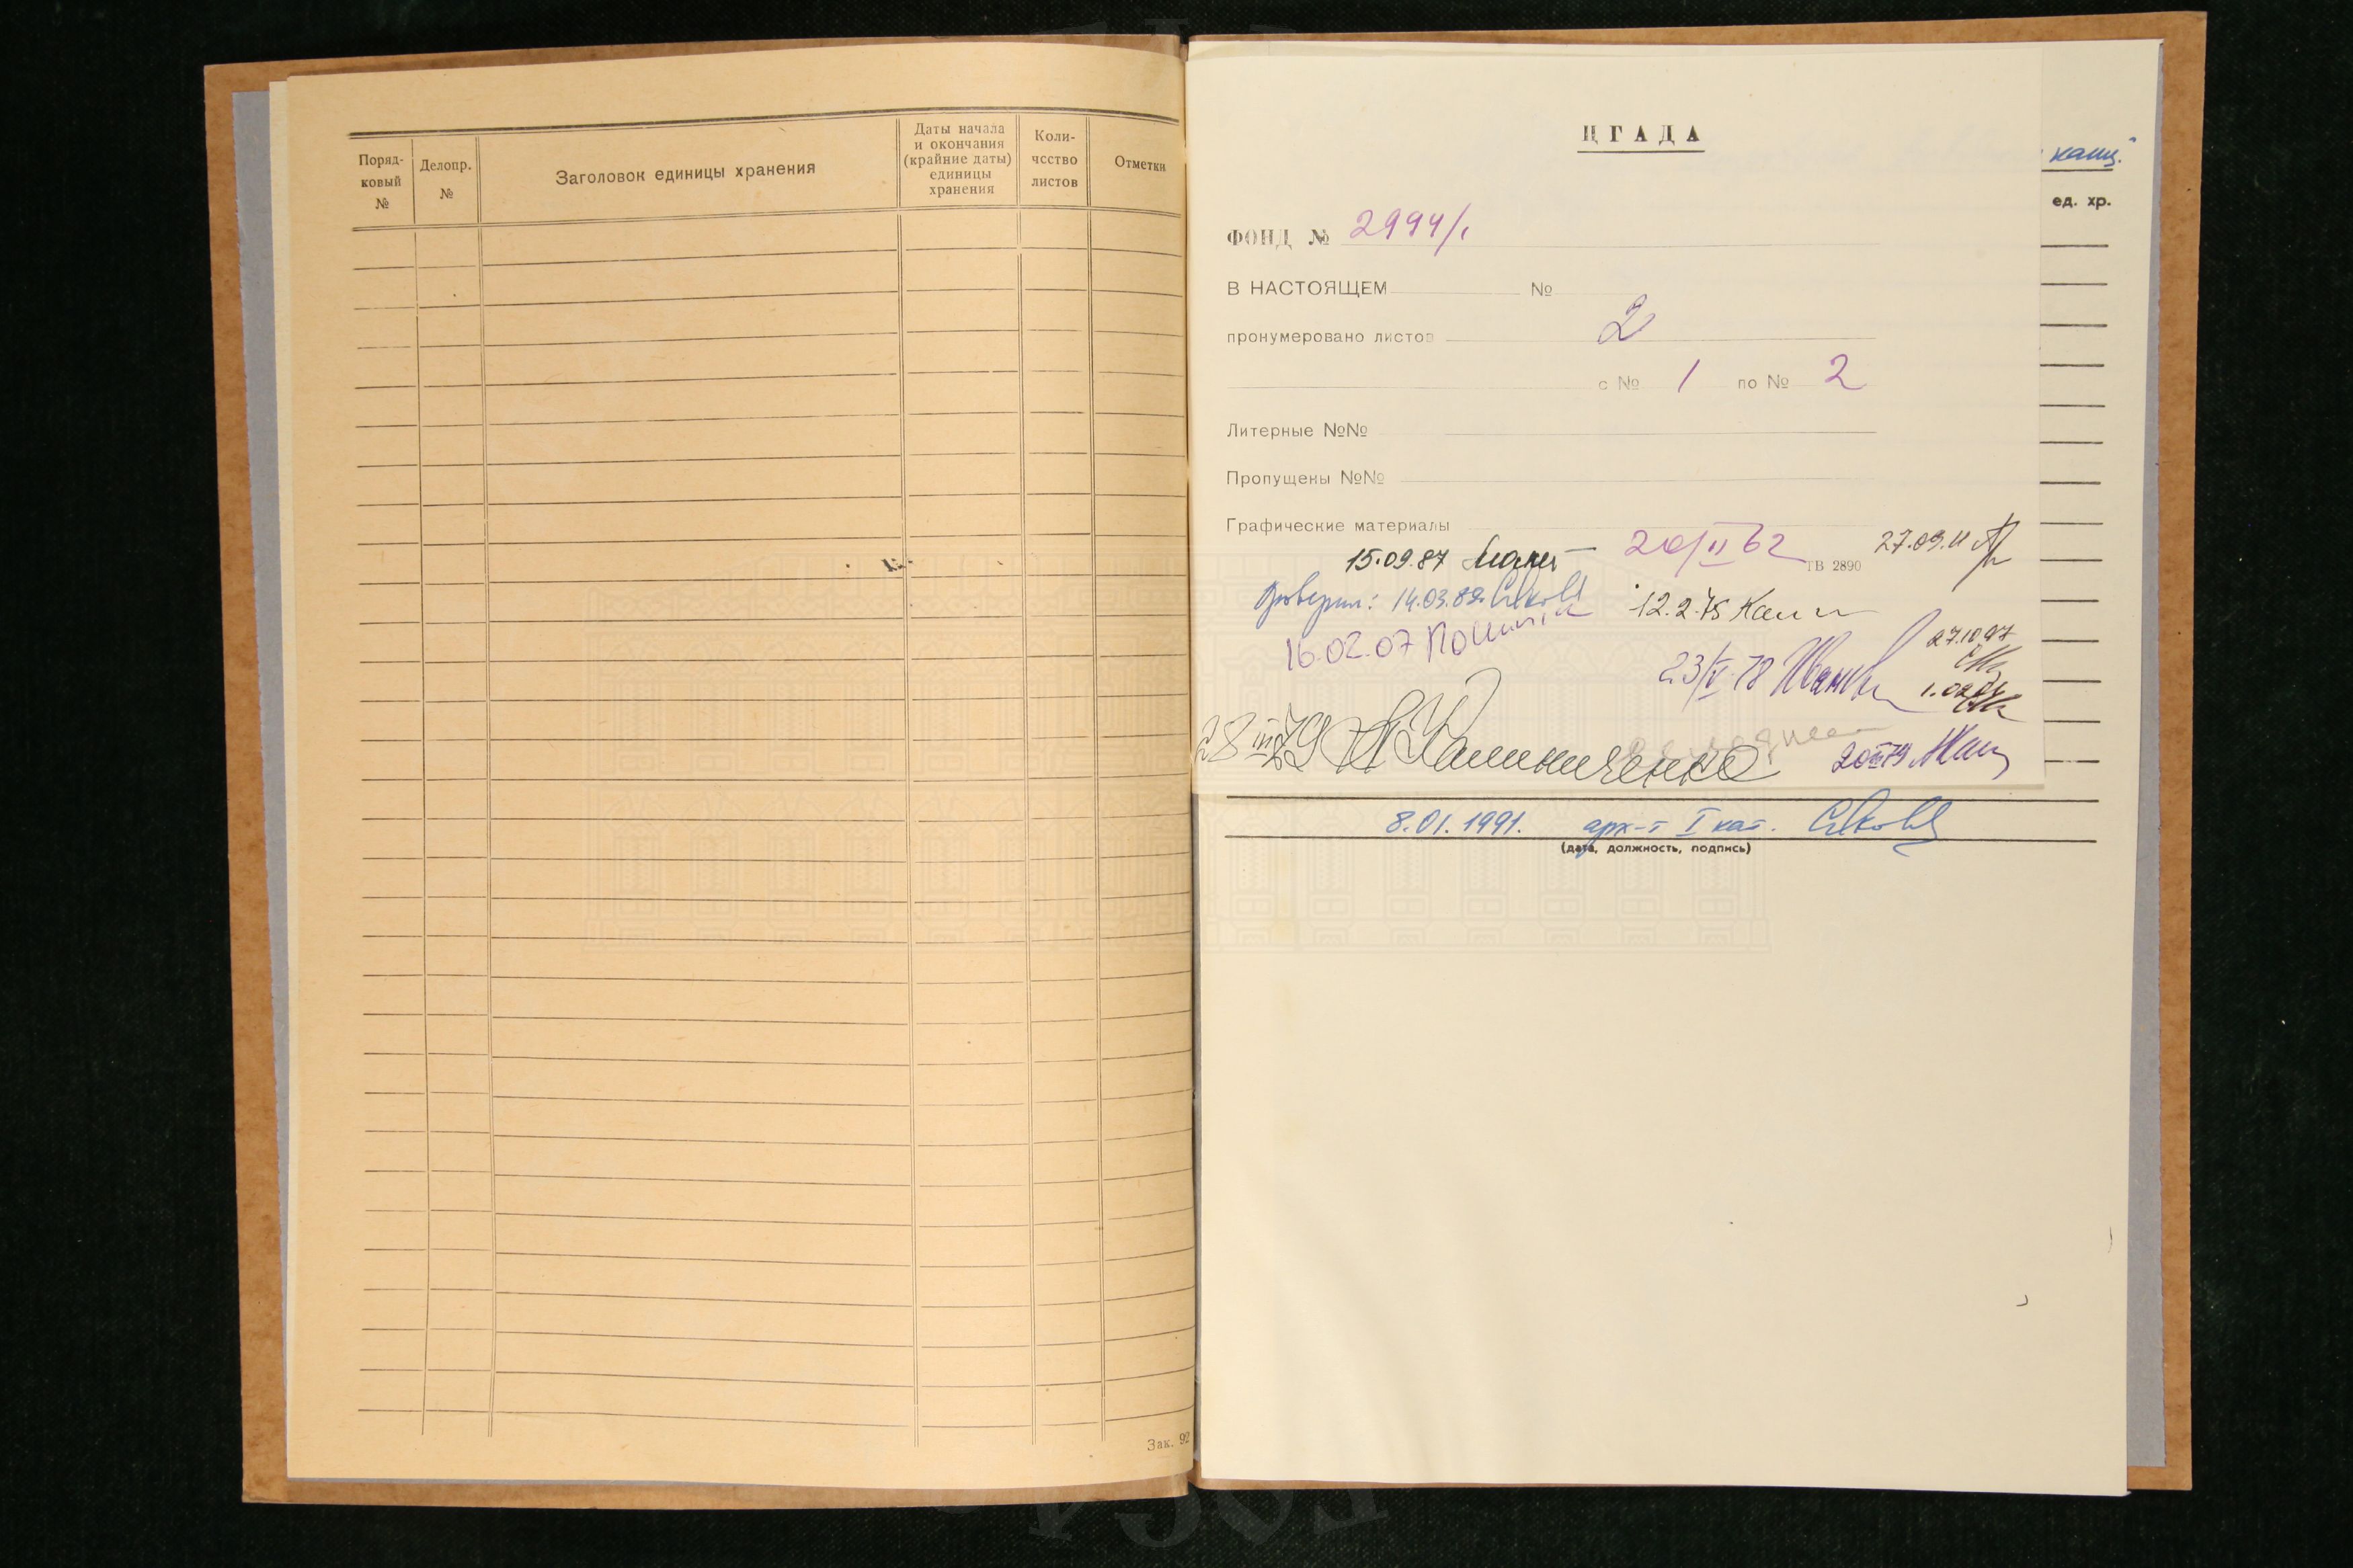 Поряд-
ковый
№
Делопр.
№
Заголовок единицы хранения
Даты начала
и окончания
(крайние даты)
единицы
хранения
Коли-
чество
листов
Отметки
Зак. 92
ЦГАДА
ФОНД № 2994/1
В НАСТОЯЩЕМ №
пронумеровано листов 2
с № 1 по № 2
Литерные №№
Пропущены №№
Графические материалы
15.09.87
20/II 62
ТВ 2890
27.09.11
Проверил: 14.03.89.
12.2.75
16.02.07
23/V-78
27.10.97
28 III 79 Калиниченко
8.01.1991. арх-т I кат.
(дата, должность, подпись)
ед. хр.